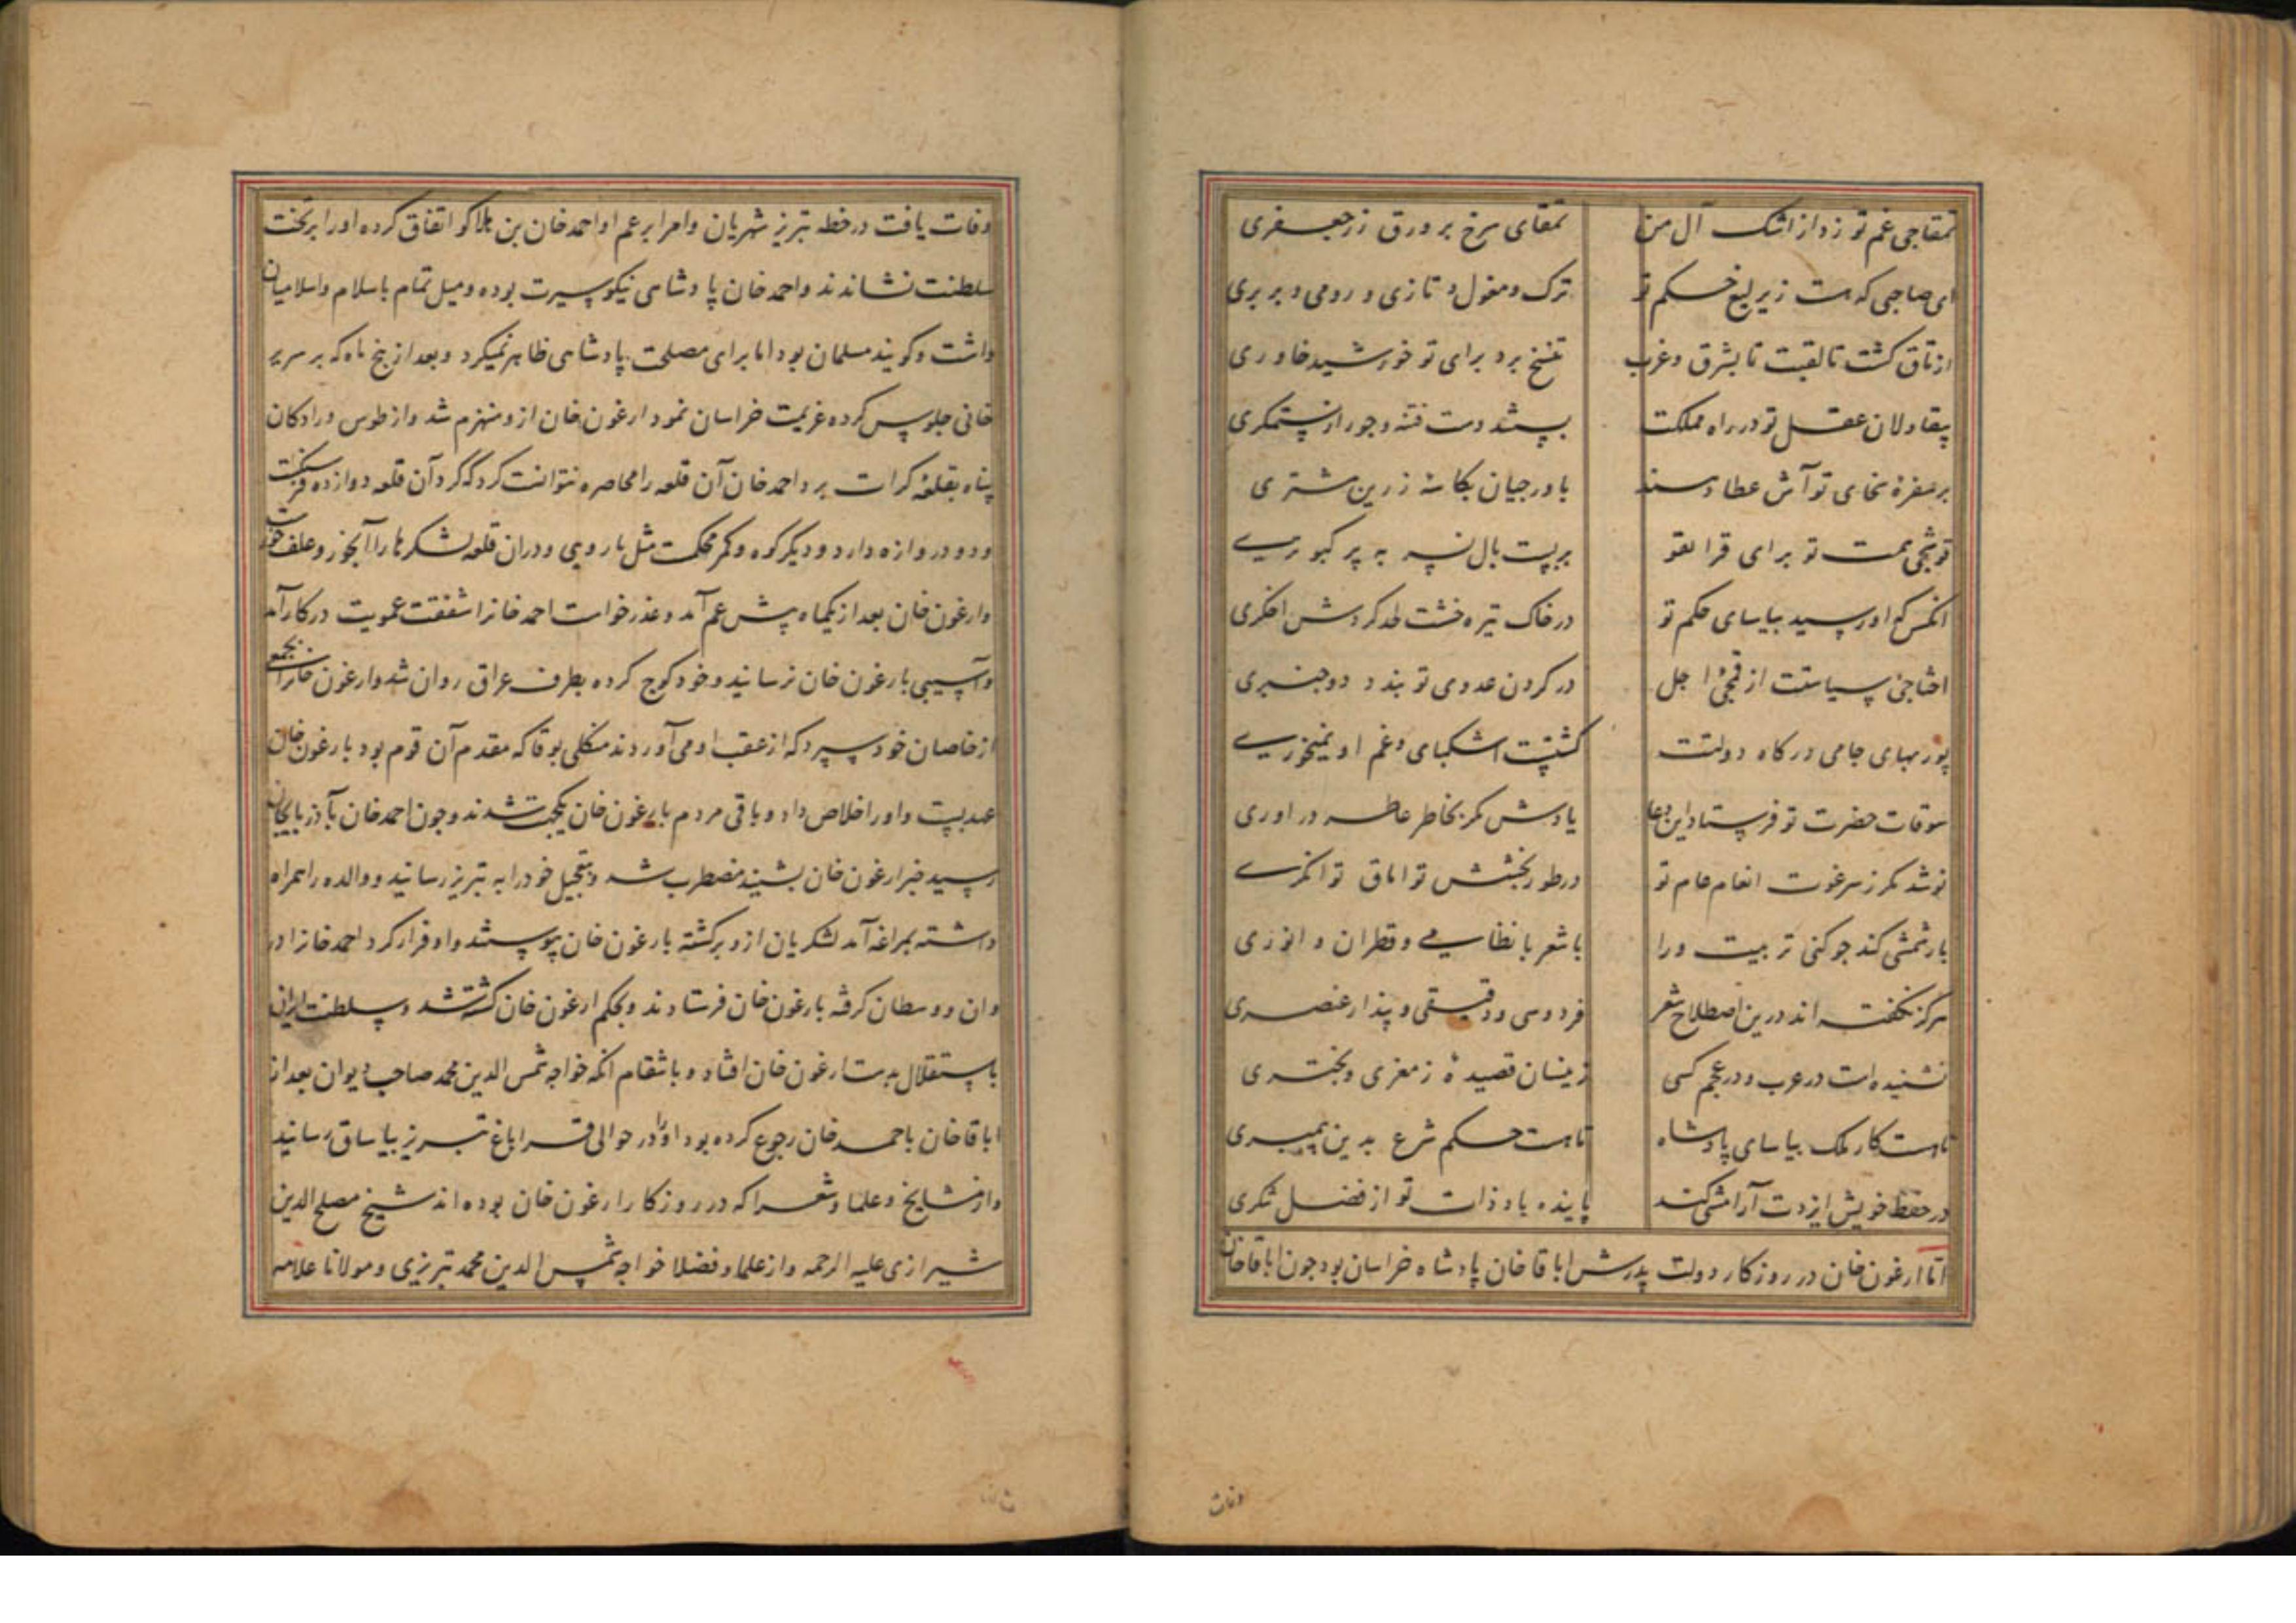 تمقاجی غم تو زد از اشک آل من تمقای سرخ بر ورق زر جعفری
ای صاحبی که هست ز یرلیغ حکم تو ترک و مغول و تازی و رومی و بربری
از تاق کشت تا لقبت تا بشرق و غرب تنسخ برد برای تو خورشید خاوری
یقاولان عقل تو در راه مملکت ببستند دست فتنه و جور از ستمکری
بر سفرهٔ سخای تو آش عطا دهند باورجیان بکاسهٔ زرین مشتری
قوشجی همت تو برای قرا لقو بربست بال نسر به پر کبوتری
انکس که او رسید بیاسای حکم تو در خاک تیره خشت لحد کردش افکری
اختاجی سیاستت از قمجی اجل در کردن عدوی تو بندد دو جنبری
پور بهای جامی درکاه دولتت کشتست اشکبای و غم او نمیخوری
سوقات حضرت تو فرستاد این دعا یادش مکر بخاطر عاطر در اوری
نوشد مکر ز سرغوت انعام عام تو در طور بخشش تو اناق توانکری
بارشمشی کند جو کنی تربیت ورا با شعر با نظامی و قطران و انوری
هرکز نکفته اند درین اصطلاح شعر فردوسی و دقیقی و پندار عنصری
نشنیده است در عرب و در عجم کسی زینسان قصیدهٔ ز معزی و بختری
تا هست کار ملک بیاسای پادشاه تا هست حکم شرع بدین پیمبری
در حفظ خویش ایزدت آرامشی کند پاینده باد ذات تو از فضل تنکری
اما ارغون خان در روزکار دولت پدرش اباقا خان پادشاه خراسان بود جون اباقا خان
وفات
وفات یافت در خطه تبریز شهریان و امرا بر عم او احمد خان بن هلاکو اتفاق کرده او را بر تخت
سلطنت نشاندند و احمد خان پادشاهی نیکو سیرت بوده و میل تمام باسلام و اسلامیان
داشت و کویند مسلمان بود اما برای مصلحت پادشاهی ظاهر نمیکرد و بعد از پنج ماه که بر سریر
خانی جلوس کرده عزیمت خراسان نمود ارغون خان ازو منهزم شد و از طوس و رادکان
پناه بقلعه کرات برد احمد خان آن قلعه را محاصره نتوانست کرد که کرد آن قلعه دوازده فرسنکست
و دو دروازه دارد و دیکر کوه و کمر محکمست مثل باروی و در ان قلعه لشکرها را آبخور و علف خوار
وارغون خان بعد از یکماه پیش عم آمد و عذر خواست احمد خانرا شفقت عمویت در کار آمد
و آسیبی بارغون خان نرسانید و خود کوچ کرده بطرف عراق روان شد وارغون خانرا بجمعی
از خاصان خود سپرد که از عقب او می آوردند منکلی بوقا که مقدم آن قوم بود با ارغون خان
عهد بست و او را خلاص داد و باقی مردم با ارغون خان یکجهت شدند و جون احمد خان بآذربایجان
رسید خبر ارغون خان بشنید مضطرب شد و بتعجیل خود را به تبریز رسانید و والده را همراه
داشته بمراغه آمد لشکریان ازو برکشته بارغون خان پیوستند و او فرار کرد احمد خانرا در
وان و وسطان کرفته بارغون خان فرستادند و بحکم ارغون خان کشته شد و سلطنت ایران
باستقلال بدست ارغون خان افتاد و بانتقام انکه خواجه شمس الدین محمد صاحب دیوان بعد از
اباقا خان باحمد خان رجوع کرده بود او را در حوالی قراباغ تبریز بیاساق رسانید
و از مشایخ و علما و شعرا که در روزکار ارغون خان بوده اند شیخ مصلح الدین
شیرازی علیه الرحمه و از علما و فضلا خواجه شمس الدین محمد تبریزی و مولانا علامه